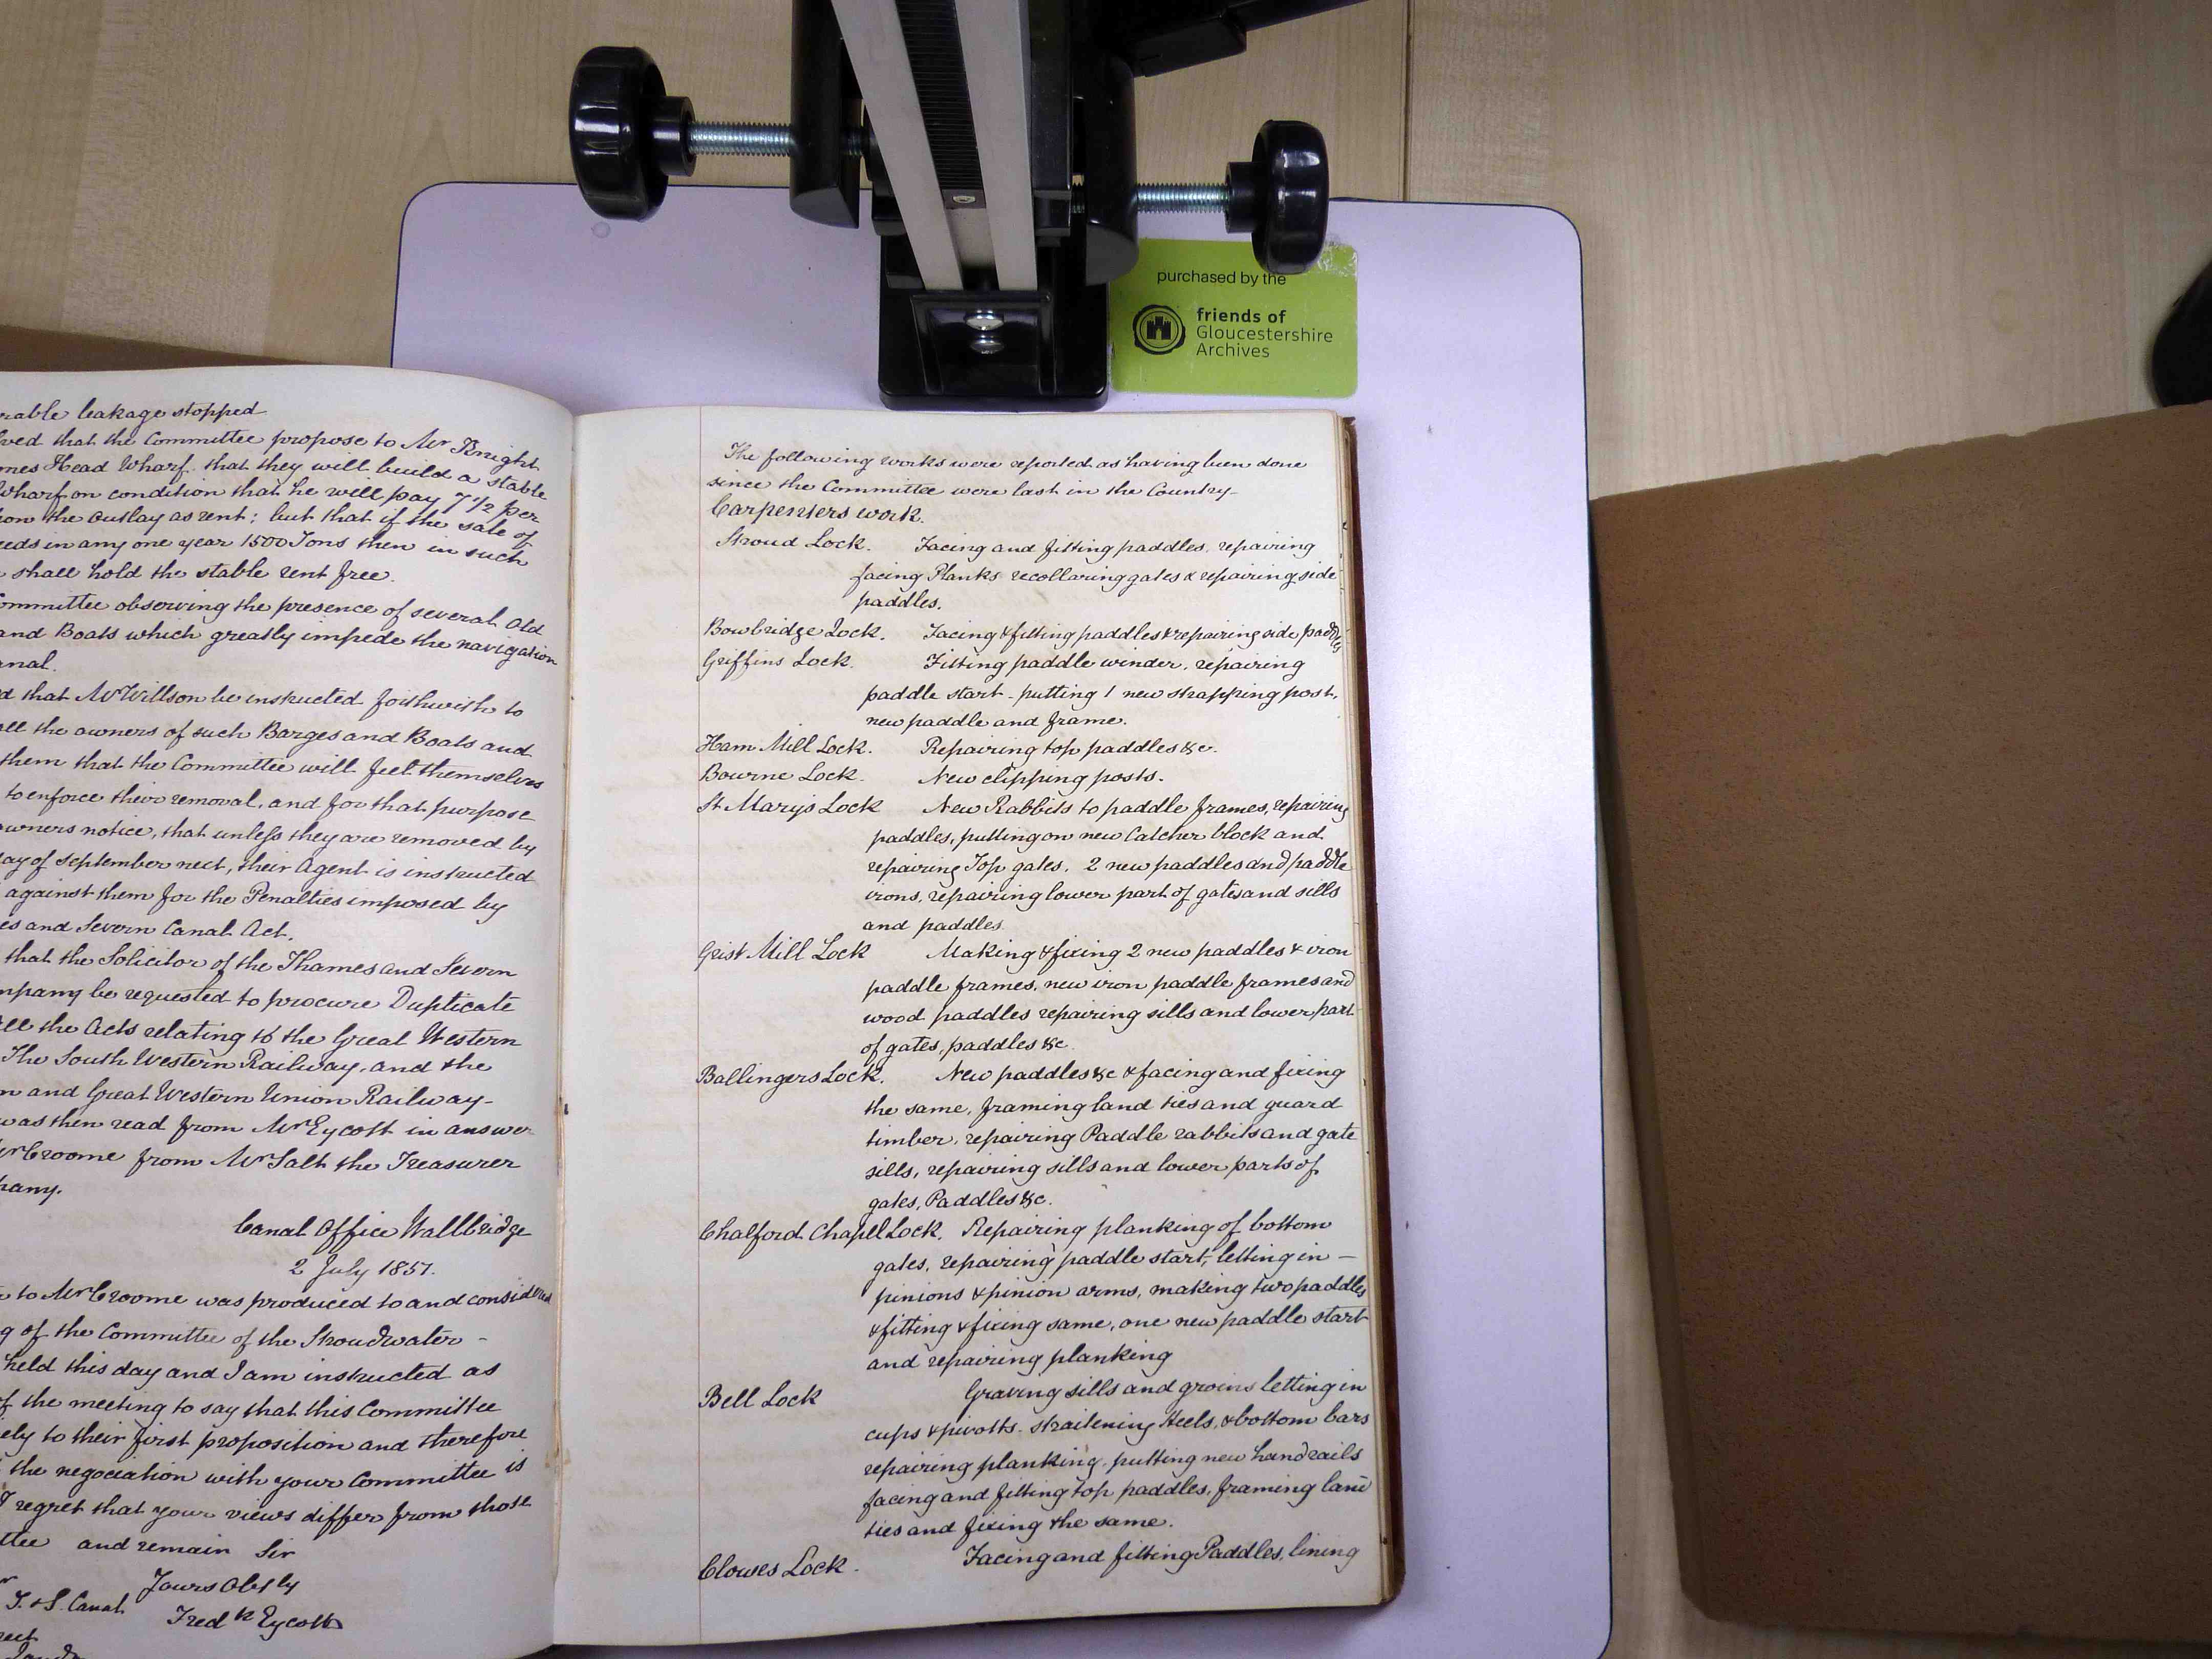 purchased by the
friends of
Gloucestershire
Archives
leakage stopped
that the Committee propose to Mr Knight
Head Wharf. that they will build a stable
Wharf on condition that he will pay 7 1/2 per
the outlay as rent; but that if the sale of
in any one year 1500 Tons then in such
shall hold the stable rent free.
Committee observing the presence of several old
and Boats which greatly impede the navigation
that Mr Willson be instructed forthwith to
the owners of such Barges and Boats and
them that the Committee will feel themselves
to enforce their removal, and for that purpose
owners notice, that unless they are removed by
day of September next, their Agent is instructed
against them for the Penalties imposed by
and Severn Canal Act.
that the Solicitor of the Thames and Severn
be requested to procure Duplicate
the Acts relating to the Great Western
The South Western Railway, and the
and Great Western Union Railway-
was then read from Mr Eycott in answer
Croome from Mr Salt the Treasurer
Canal Office Wallbridge
2 July 1857.
to Mr Croome was produced to and considered
of the Committee of the Stroudwater -
held this day and I am instructed as
of the meeting to say that this Committee
to their first proposition and therefore
the negociation with your Committee is
I regret that your views differ from those
and remain Sir
Yours Obtly
T. & S. Canal
Fredk Eycott
The following works were reported as having been done
since the Committee were last in the Country-
Carpenters work.
Stroud Lock. Facing and fitting paddles, repairing
facing Planks recollaring gates & repairing side
paddles.
Bowbridge Lock. Facing & fitting paddles & repairing side paddles
Griffins Lock. Fitting paddle winder, repairing
paddle start - putting 1 new strapping post,
new paddle and frame.
Ham Mill Lock. Repairing top paddles &c.
Bourne Lock. New clipping posts.
St Marys Lock New Rabbits to paddle frames, repairing
paddles, putting on new Catcher block and
repairing Top gates. 2 new paddles and paddle
irons, repairing lower part of gates and sills
and paddles.
Grist Mill Lock Making & fixing 2 new paddles & iron
paddle frames, new iron paddle frames and
wood paddles repairing sills and lower part
of gates, paddles &c
Ballingers Lock. New paddles &c & facing and fixing
the same, framing land ties and guard
timber, repairing Paddle rabbits and gate
sills, repairing sills and lower parts of
gates, Paddles &c.
Chalford Chapel Lock. Repairing planking of bottom
gates, repairing paddle start, letting in —
pinions & pinion arms, making two paddles
& fitting & fixing same, one new paddle start
and repairing planking
Bell Lock Graving sills and groins letting in
cups & pivotts. straitening Heels, & bottom bars
repairing planking. putting new hand rails
facing and fitting top paddles, framing land
ties and fixing the same.
Clowes Lock. Facing and fitting Paddles, lining